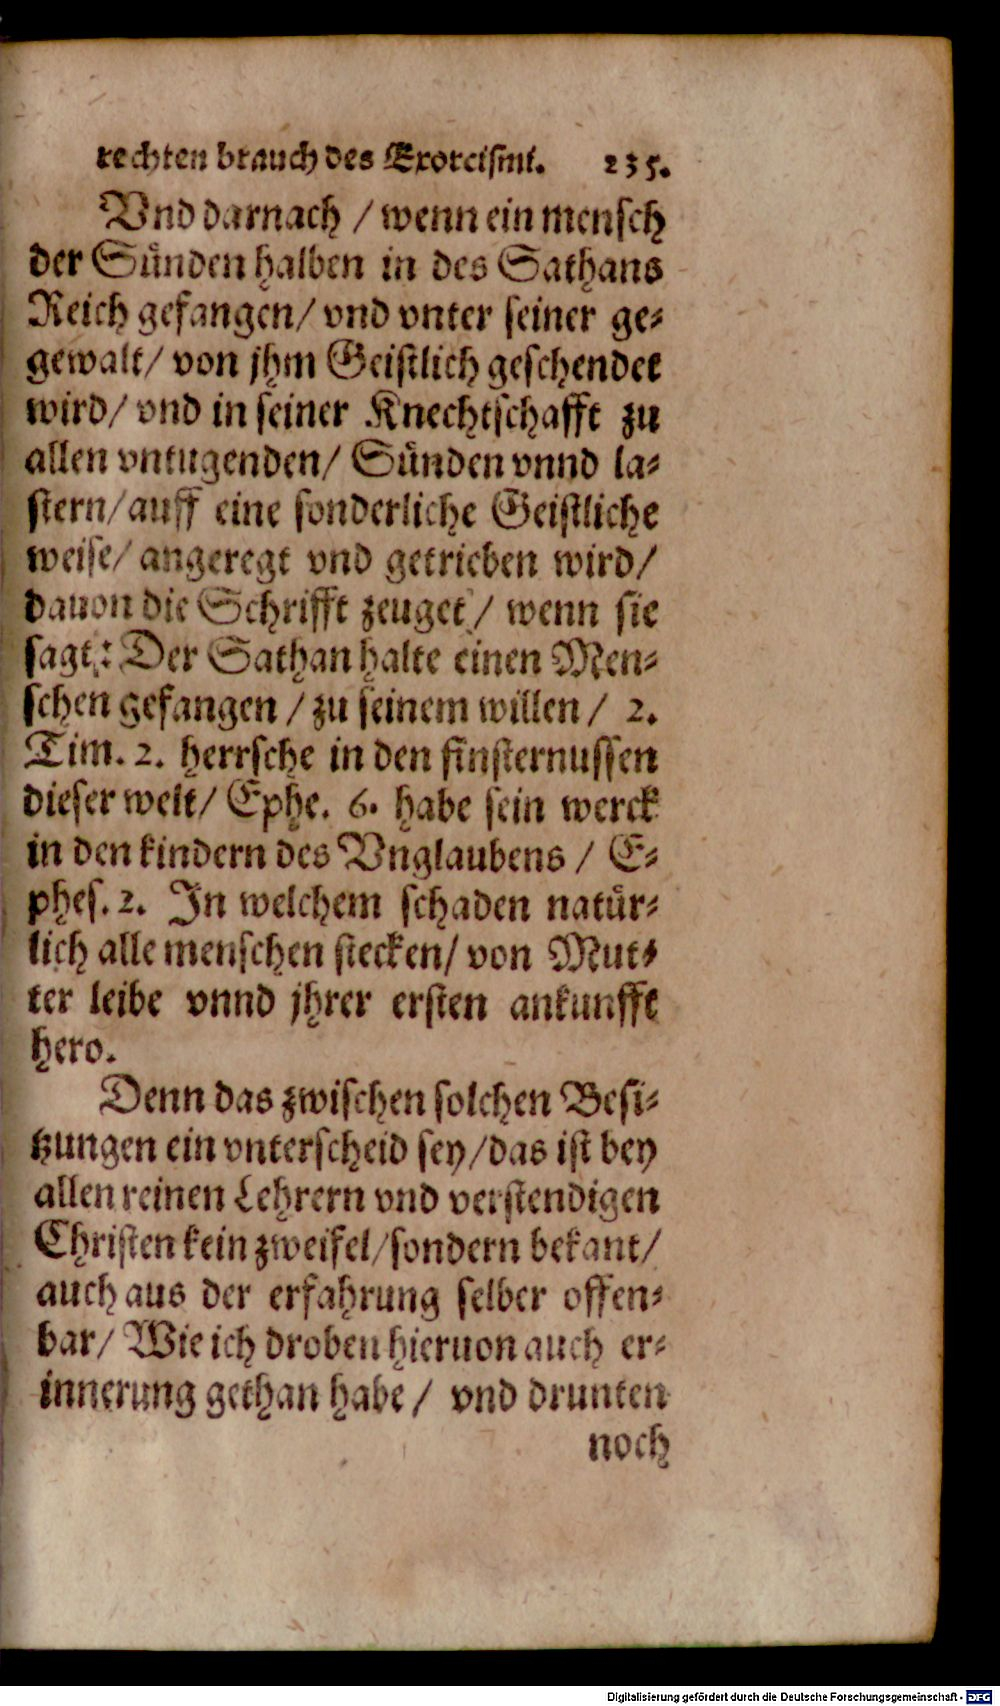 rechten brauch des Exorcismi. 235.
Vnd darnach / wenn ein mensch
der Sünden halben in des Sathans
Reich gefangen/ vnd vnter seiner ge-
gewalt/ von jhm Geistlich geschendet
wird/ vnd in seiner Knechtschafft zu
allen vntugenden/ Sünden vnnd la-
stern/ auff eine sonderliche Geistliche
weise/ angeregt vnd getrieben wird/
dauon die Schrifft zeuget / wenn sie
sagt: Der Sathan halte einen Men-
schen gefangen / zu seinem willen / 2.
Tim. 2. herrsche in den finsternussen
dieser welt/ Ephe. 6. habe sein werck
in den kindern des Vnglaubens / E-
phes. 2. In welchem schaden natür-
lich alle menschen stecken/ von Mut-
ter leibe vnnd jhrer ersten ankunfft
hero.
Denn das zwischen solchen Besi-
tzungen ein vnterscheid sey/das ist bey
allen reinen Lehrern vnd verstendigen
Christen kein zweifel/sondern bekant/
auch aus der erfahrung selber offen-
bar/ Wie ich droben hieruon auch er-
innerung gethan habe / vnd drunten
noch
Digitalisierung gefördert durch die Deutsche Forschungsgemeinschaft - DFG